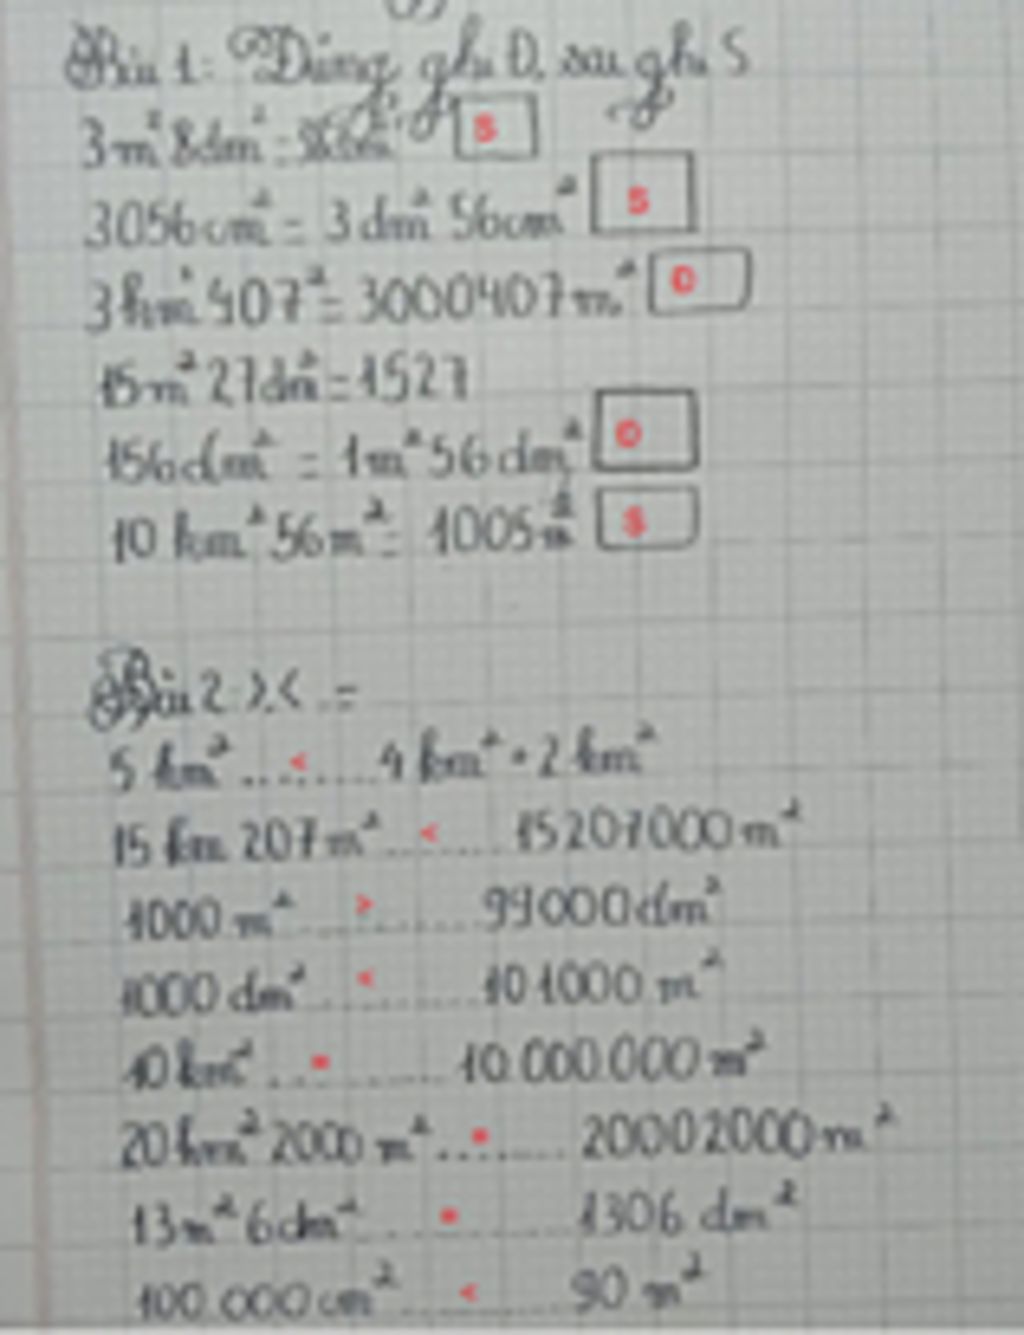 Bài 1: Đúng ghi Đ, sai ghi S
3m² 8dm² = dm² S
3056cm² = 3dm² 56cm² S
3km² 407² = 3000407m² D
15m² 27dm² = 1527
156dm² = 1m² 56dm² D
10 km² 56m² = 1005m² S
Bài 2 > < =
5 km² ....<.... 4 km² + 2 km²
15 km 207m² ..<.... 15207000m²
1000 m² ..>.... 99000dm²
1000 dm² ..<.... 101000 m²
10km² ..=.... 10.000.000m²
20km² 2000 m² ..=.... 20002000m²
13m² 6dm² ..=.... 1306 dm²
100.000cm² ..<.... 90 m²